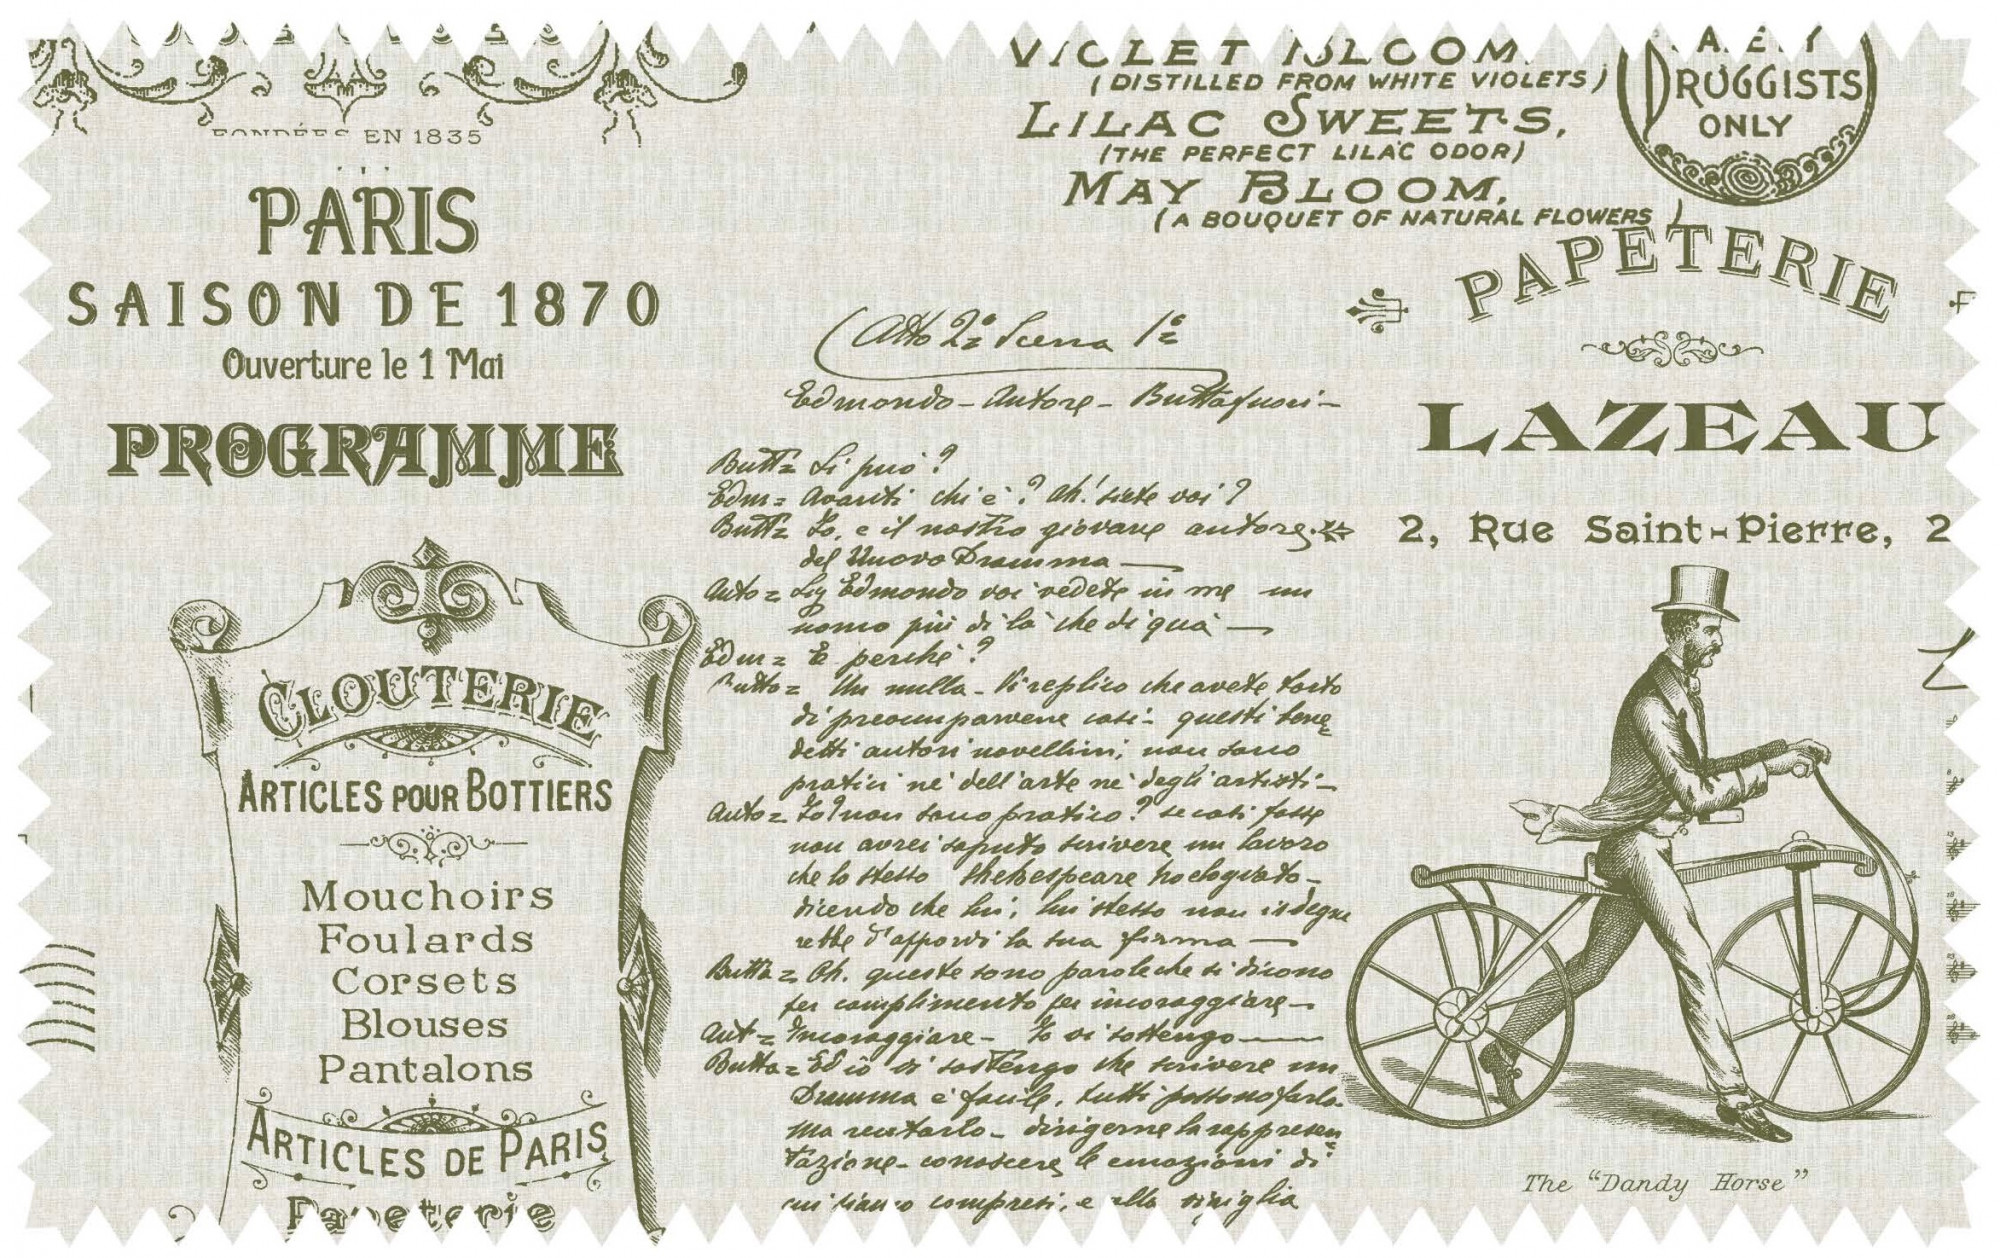 FONDÉES EN 1835
PARIS
SAISON DE 1870
Ouverture le 1 Mai
PROGRAMME
CLOUTERIE
ARTICLES POUR BOTTIERS
Mouchoirs
Foulards
Corsets
Blouses
Pantalons
ARTICLES DE PARIS
Papeterie
VIOLET BLOOM.
(DISTILLED FROM WHITE VIOLETS)
LILAC SWEETS,
(THE PERFECT LILAC ODOR)
MAY BLOOM,
(A BOUQUET OF NATURAL FLOWERS)
DRUGGISTS
ONLY
Atto 2º Scena 1ª
Edmondo - Autore - Buttafuori -
Butt= Si può?
Edm= Avanti chi è? Ah! siete voi?
Butt= Io, e il nostro giovane autore
del Nuovo Dramma —
Auto= Sig Edmondo voi vedete in me un
uomo più di là che di quà —
Edm= E perché?
Butta= Un nulla - Vi replico che avete torto
di preocuparvene così - questi bene
detti autori novellini, non sono
pratici nè dell'arte nè degli artisti -
Auto= Io? non sono pratico? se così fosse
non avrei saputo scrivere un lavoro
che lo stesso Shekespeare ha elogiato -
dicendo che lui, lui stesso non isdegne
rebbe d'apporvi la sua firma —
Butta= Oh. queste sono parole che si dicono
per complimento per incoraggiare -
Aut= Incoraggiare - Io vi sostengo —
Butta= Ed io vi sostengo che scrivere un
Dramma è facile, tutti possono farlo.
ma recitarlo - dirigerne la rappresen
tazione - conoscere le emozioni di
cui siamo compresi, e alla vigiglia
PAPETERIE
LAZEAU
2, Rue Saint-Pierre, 2
The "Dandy Horse"